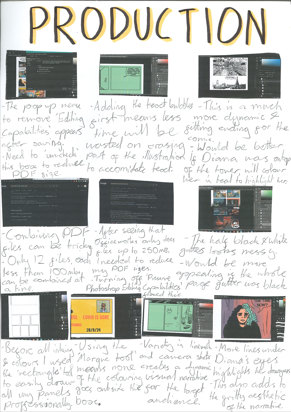 PRODUCTION
-The pop up menu
to remove 'Editing
Capabilities' appears
after saving.
-Need to uncheck
this box to reduce
PDF size.
-Adding the text bubbles
first means less
time will be
wasted on erasing
part of the illustration
to accomodate text.
-This is a much
more dynamic &
ending for the
comic
-Would be better
if Diana was on top
of the tower with colour
in teal to highlight her.
-Combining PDF
files can be tricky
-Only 12 files each
less than 100mb
can be combined at
a time.
-After seeing that
only takes
files up to 250mb
I needed to reduce
my PDF sizes.
-Turning off Preserve
Photoshop Editing Capabilities
-The half black & white
gutters looks messy
-Would be more
appealing if the whole
page gutter was black
-Before all
& colours I used
the 'rectangle tool'
to easily draw
all my panels
professionally.
-Using the
'Marquee tool'
means none
of the colouring
goes outside the
box.
-Variety in
and camera shots
creates a dynamic
visual narrative
for the target
audience.
-More lines under
Diana's eyes
highlights the
-This also adds to
the aesthetic